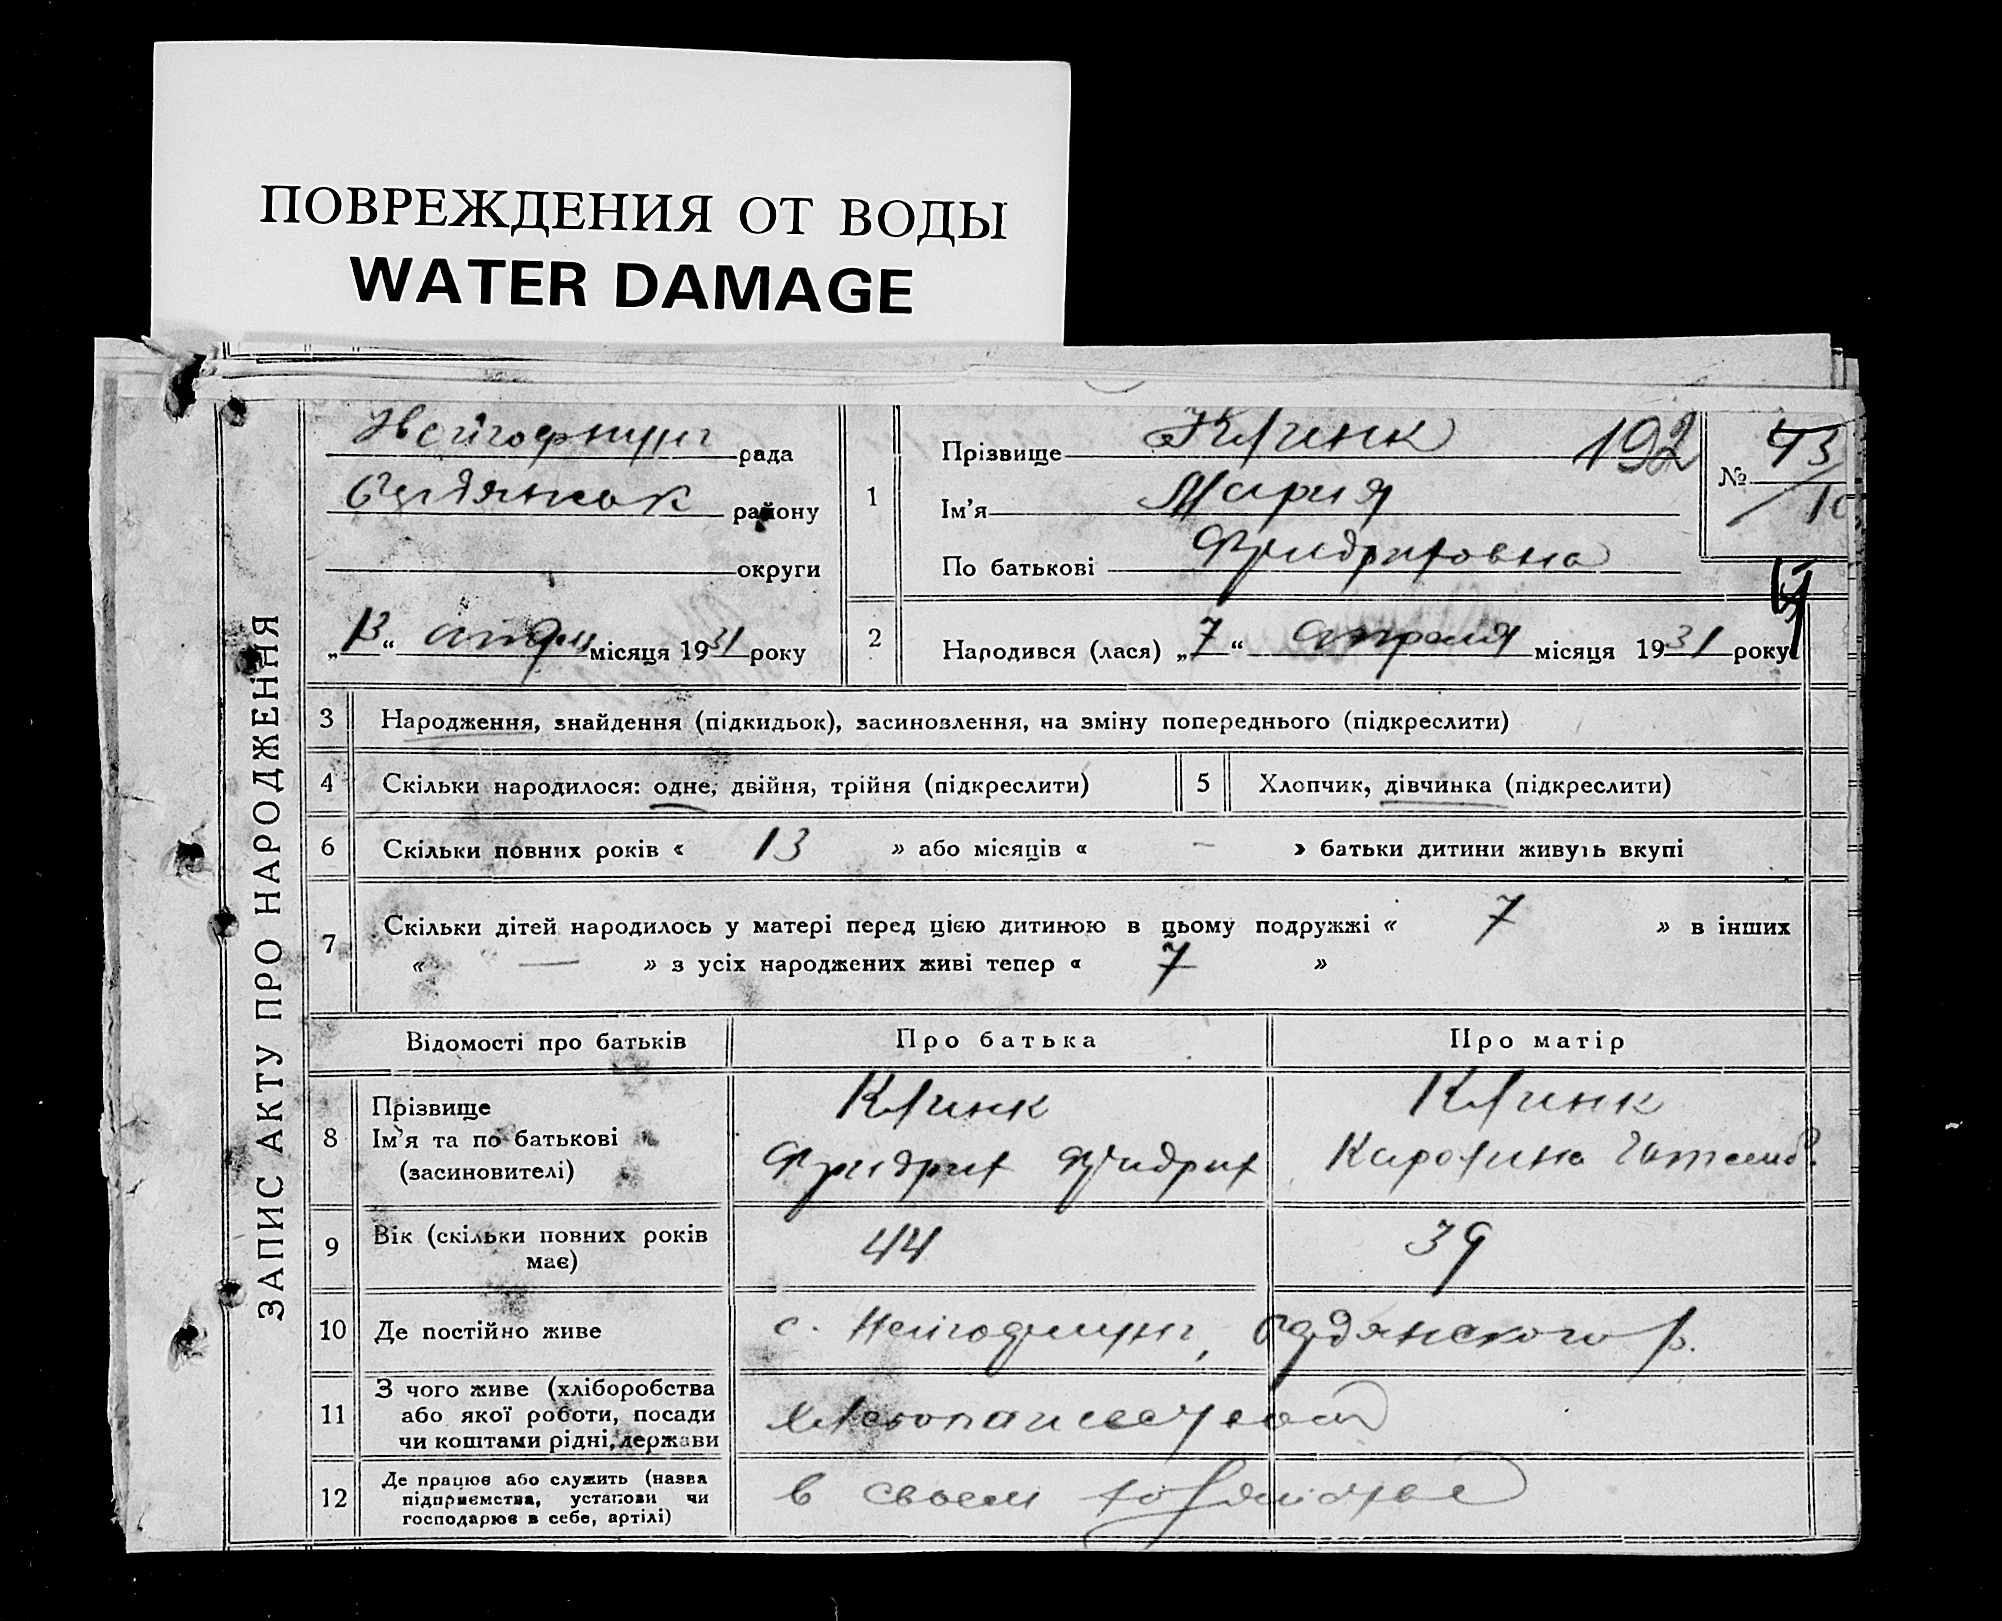 ПОВРЕЖДЕНИЯ ОТ ВОДЫ
WATER DAMAGE
ЗАПИС АКТУ ПРО НАРОДЖЕННЯ
рада
району
округи
„13“ місяця 1931 року
1
Прізвище Клинк 192
Ім'я Мария
По батькові Фридриховна
№ 43
2
Народився (лася) „7“ апреля місяця 1931 року
3 Народження, знайдення (підкидьок), засиновлення, на зміну попереднього (підкреслити)
4 Скільки народилося: одне, двійня, трійня (підкреслити)
5 Хлопчик, дівчинка (підкреслити)
6 Скільки повних років « 13 » або місяців « – » батьки дитини живуть вкупі
7 Скільки дітей народилось у матері перед цією дитиною в цьому подружжі « 7 » в інших
« — » з усіх народжених живі тепер « 7 »
Відомості про батьків Про батька Про матір
8 Прізвище Клинк Клинк
Ім'я та по батькові Фридрих Фридрих Каролина
(засиновителі)
9 Вік (скільки повних років 44 39
має)
10 Де постійно живе с.
11 З чого живе (хліборобства
або якої роботи, посади
чи коштами рідні, держави
12 Де працює або служить (назва
підприємства, установи чи
господарює в себе, артілі)
в своем хозяйстве